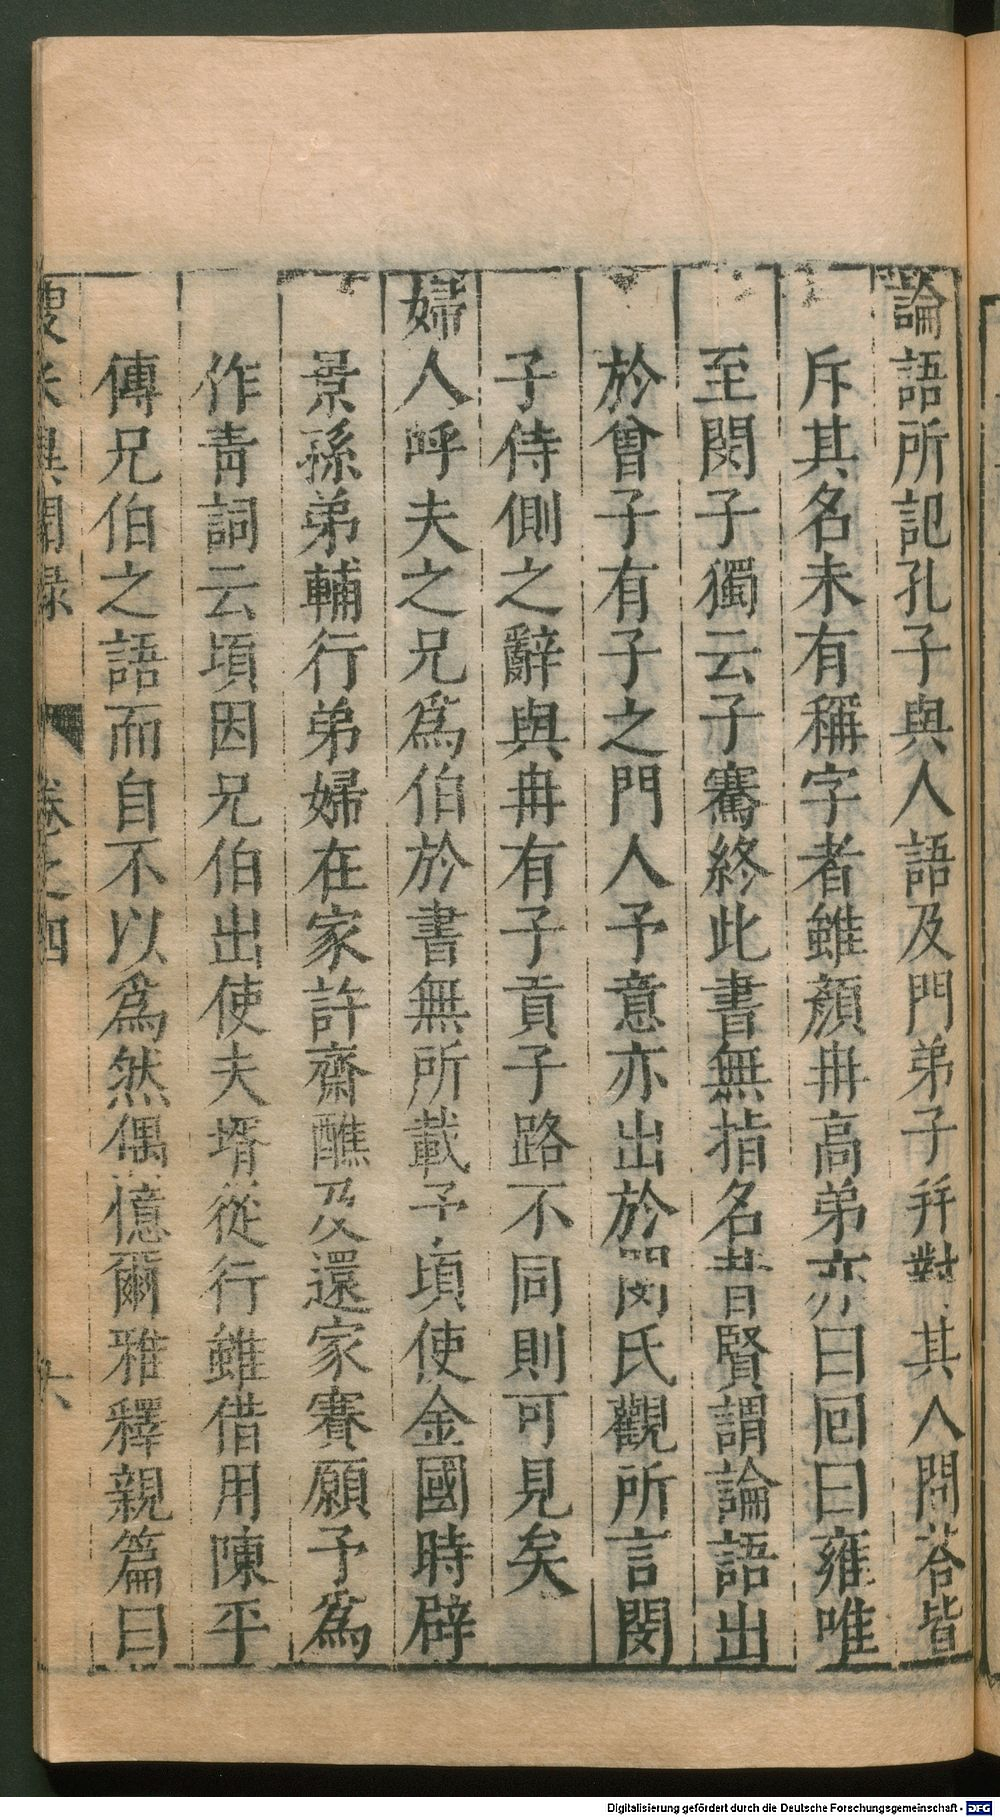 論語所記孔子與人語及門弟子并對其人問答皆
斥其名未有稱字者雖顏冉高弟亦曰回曰雍唯
至閔子獨云子騫終此書無指名昔賢謂論語出
於曾子有子之門人予意亦出於閔氏觀所言閔
子侍側之辭與冉有子貢子路不同則可見矣
婦人呼夫之兄爲伯於書無所載予頃使金國時辟
景孫弟輔行弟婦在家許齋醮及還家賽願予爲
作青詞云頃因兄伯出使夫壻從行雖借用陳平
傳兄伯之語而自不以爲然偶憶爾雅釋親篇曰
異聞錄 卷之四 六
Digitalisierung gefördert durch die Deutsche Forschungsgemeinschaft - DFG